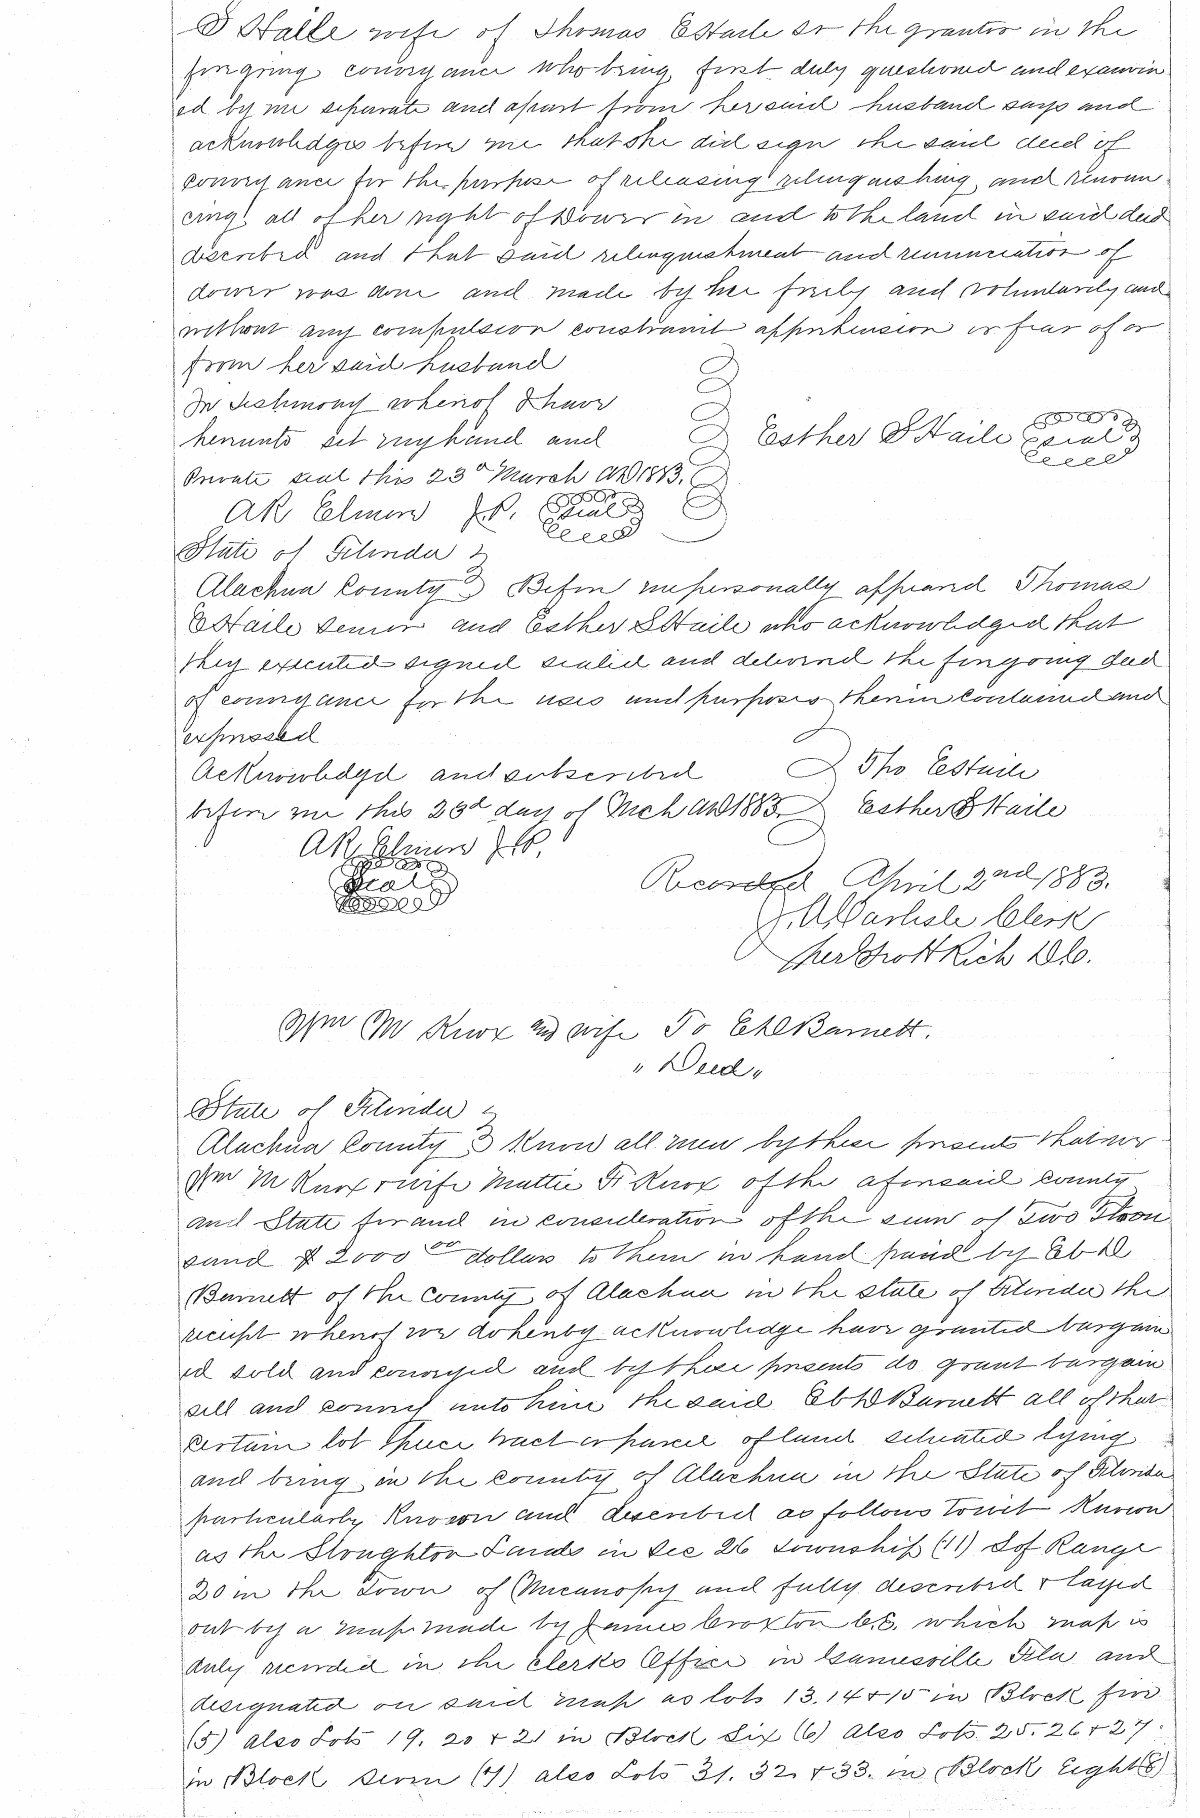 S Haile wife of Thomas E Haile sr the grantor in the
foregoing conveyance who being first duly questioned and examin
ed by me separate and apart from her said husband says and
acknowledges before me that she did sign the said deed of
conveyance for the purpose of releasing relinquishing and renoun
cing all of her right of Dower in and to the land in said deed
described and that said relinquishment and renunciation of
dower was done and made by her freely and voluntarily and
without any compulsion constraint apprehension or fear of or
from her said husband
In testimony whereof I have
hereunto set my hand and
Esther S Haile seal
Private seal this 23d March AD 1883.
AR Elmore J.P. Seal
State of Florida
Alachua County Before me personally appeared Thomas
E Haile senior and Esther S Haile who acknowledged that
they executed signed sealed and delivered the foregoing deed
of conveyance for the uses and purposes therein contained and
expressed
Acknowledged and subscribed Tho E Haile
before me this 23d day of Mch AD 1883. Esther S Haile
AR Elmore J.P.
Seal
Recorded April 2nd 1883.
J. A. Carlisle Clerk
per Rich D.C.
Wm M Knox and wife To Eb D Barnett.
"Deed"
State of Florida
Alachua County Know all men by these presents that we
Wm M Knox & wife Mattie F Knox of the aforesaid county
and State for and in consideration of the sum of Two Thou
sand $2000 00 dollars to them in hand paid by Eb D
Barnett of the County of Alachua in the state of Florida the
receipt whereof we do hereby acknowledge have granted bargain
ed sold and conveyed and by these presents do grant bargain
sell and convey unto him the said Eb D Barnett all of that
certain lot piece tract or parcel of land situated lying
and being in the county of Alachua in the State of Florida
particularly Known and described as follows towit Known
as the Stoughton Lands in Sec 26 Township (11) S of Range
20 in the Town of Micanopy and fully described & layed
out by a map made by James Croxton C.E. which map is
duly recorded in the clerks Office in Gainesville Fla and
designated on said map as lots 13. 14 & 15 in Block five
(5) also Lots 19. 20 & 21 in Block Six (6) also Lots 25. 26 & 27.
in Block Seven (7) also Lots 31. 32 & 33. in Block Eight (8)